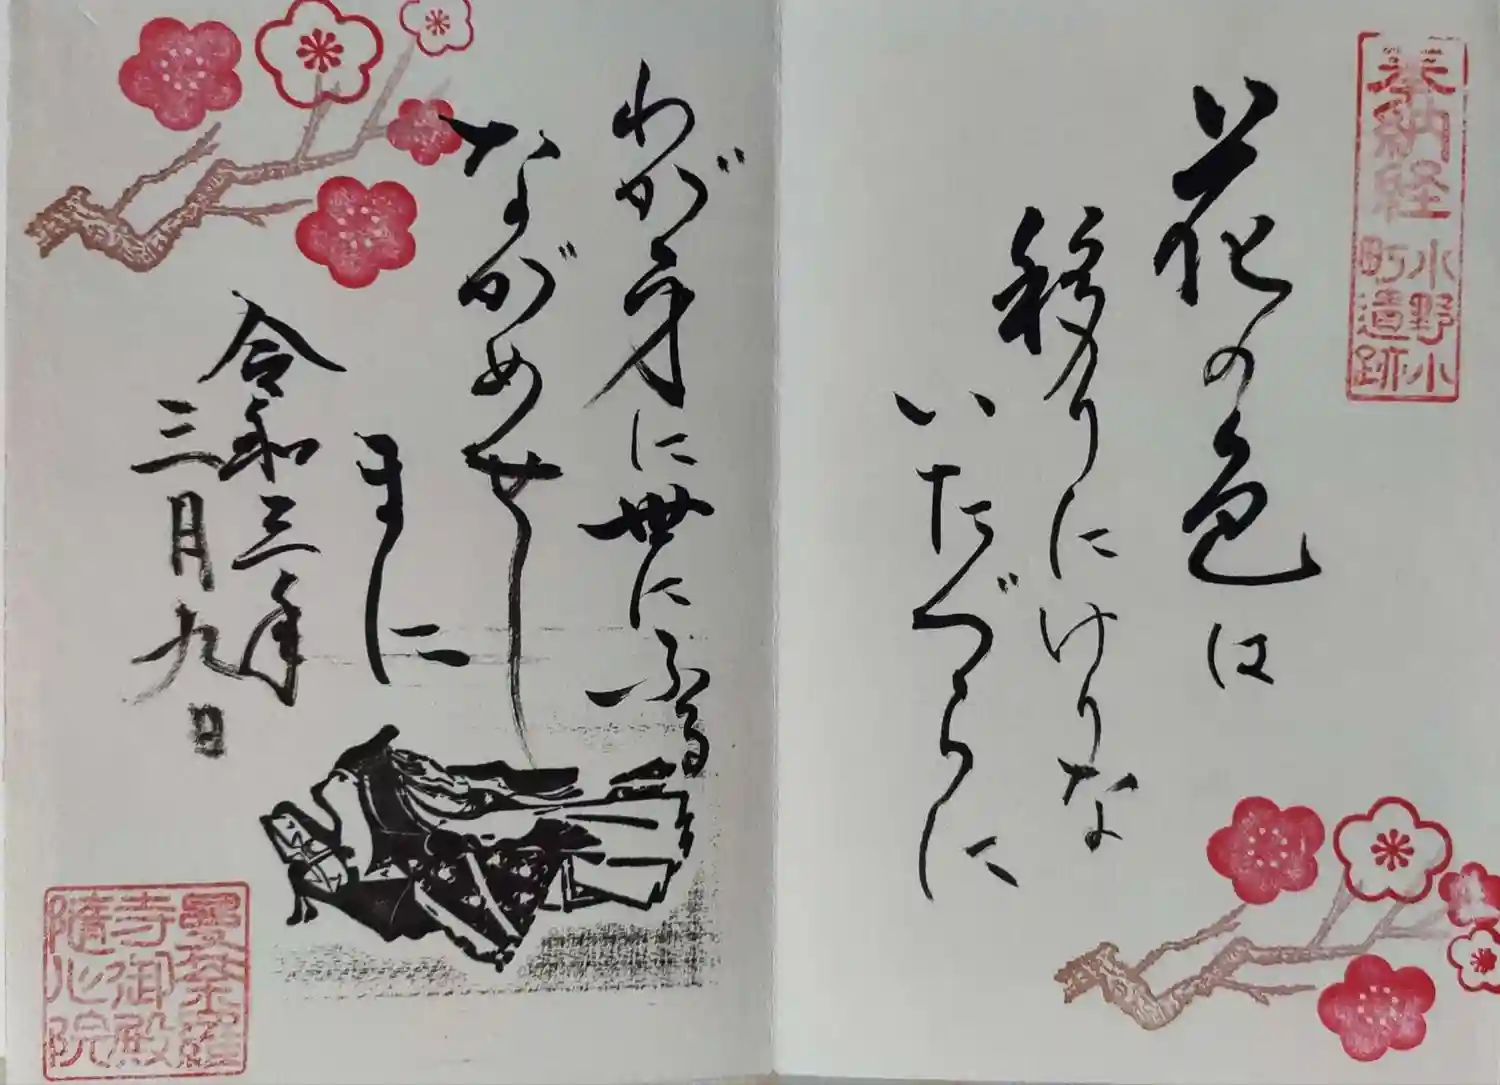 奉納経
小野小
町遺跡
花の色は
移りにけりな
いたづらに
わが身に世にふる
ながめせし
まに
令和三年
三月九日
曼荼羅
寺御殿
隨心院